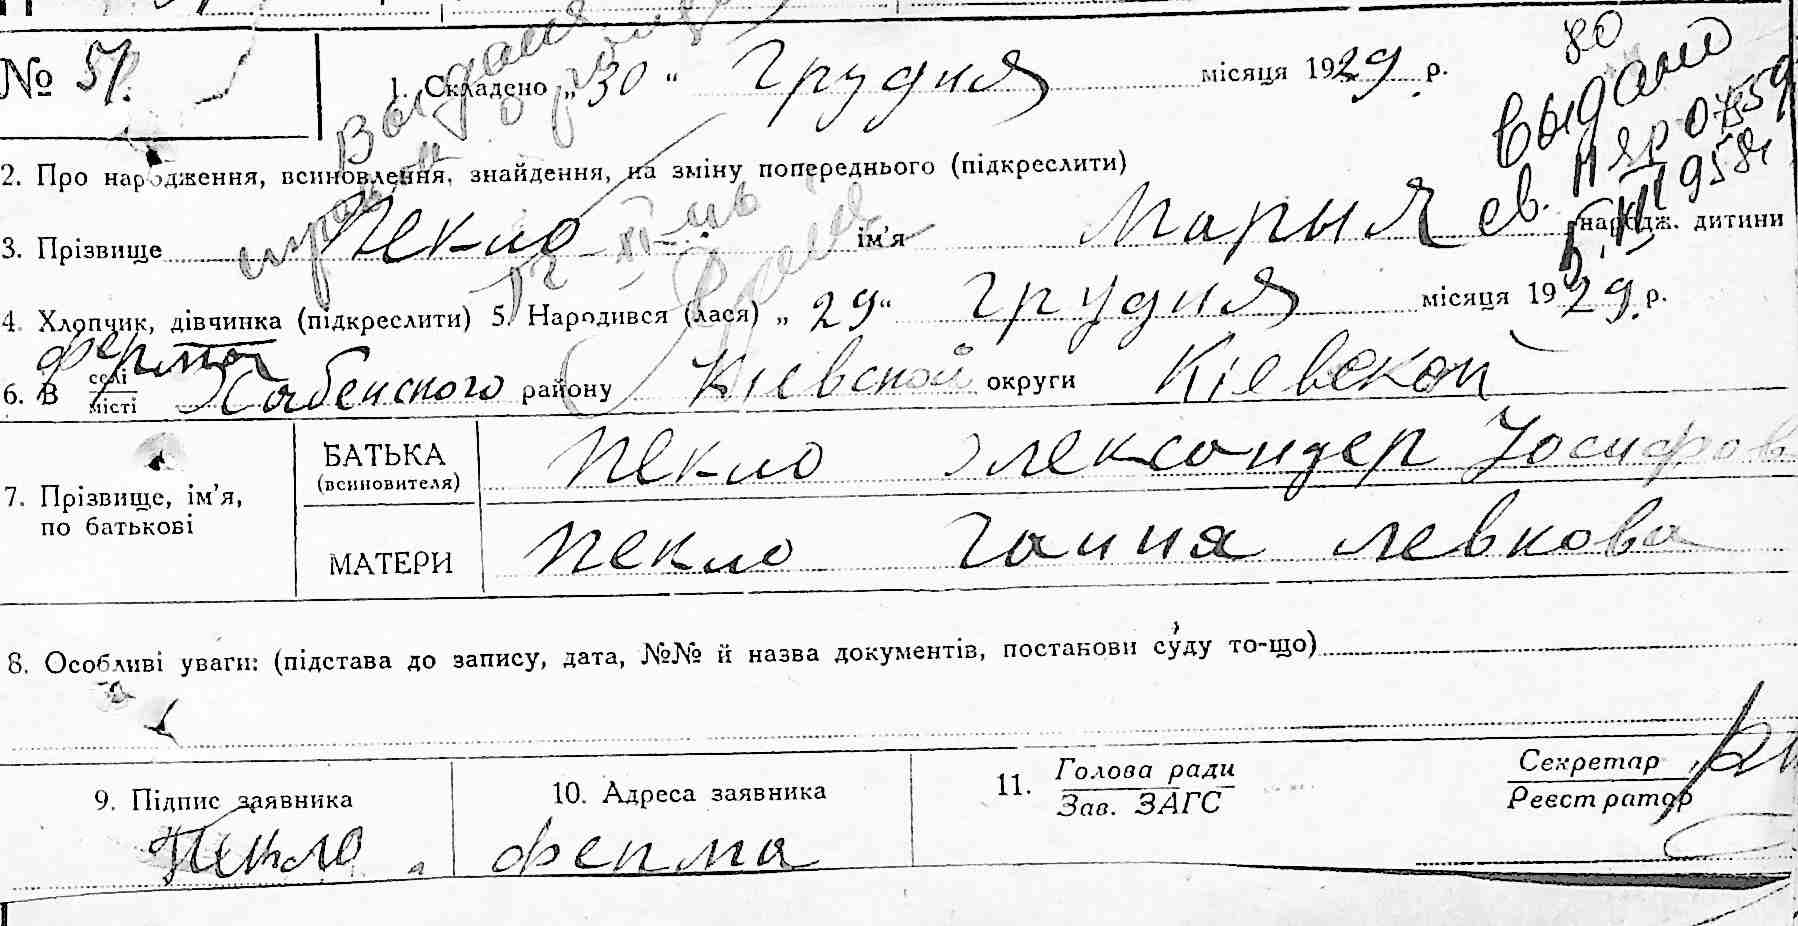 № 51.
1. Складено „30“ Грудня місяця 1929 р.
80
выдано
2. Про народження, всиновлення, знайдення, на зміну попереднього (підкреслити)
3. Прізвище Пекло ім'я Марыя народж. дитини
св. II ЯР
4. Хлопчик, дівчинка (підкреслити) 5. Народився (лася) „29“ Грудня місяця 1929 р.
ферма
6. В селі місті Хабенского району Кіевской округи Кіевской
7. Прізвище, ім'я, по батькові
БАТЬКА (всиновителя) Пекло Александер Иосифов
МАТЕРИ Пекло Ганна Левкова
8. Особливі уваги: (підстава до запису, дата, №№ й назва документів, постанови суду то-що)
9. Підпис заявника
Пекло
10. Адреса заявника
ферма
11. Голова ради
Зав. ЗАГС
Секретар
Реєстратор